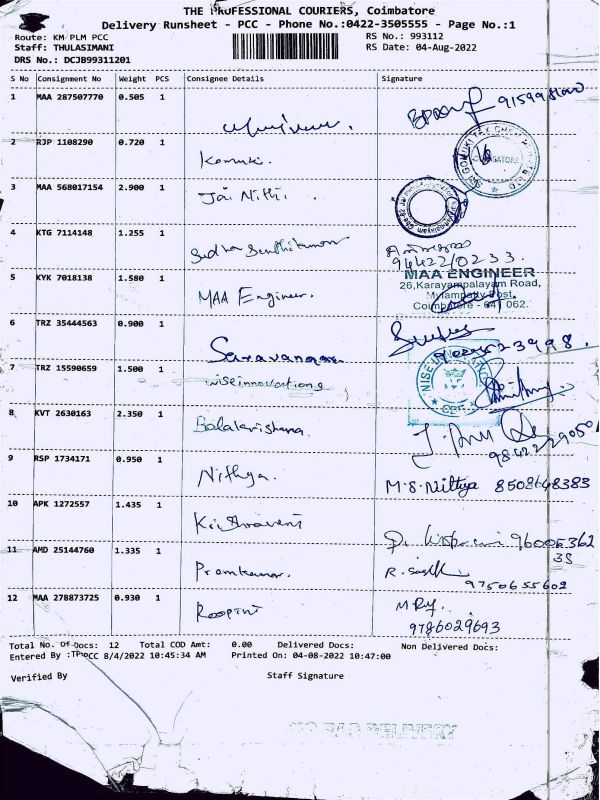 THE PROFESSIONAL COURIERS, Coimbatore
Delivery Runsheet - PCC - Phone No.:0422-3505555 - Page No.:1
Route: KM PLM PCC
RS No.: 993112
Staff: THULASIMANI
RS Date: 04-Aug-2022
DRS No.: DCJB99311201
S No Consignment No Weight PCS Consignee Details Signature
1 MAA 287507770 0.505 1
2 RJP 1108290 0.720 1 Komuki.
3 MAA 568017154 2.900 1 Jai Nithi.
4 KTG 7114148 1.255 1 Sudha Senthilkumar
94422/0233.
5 KYK 7018138 1.580 1 MAA Engineer.
MAA ENGINEER
26,Karayampalayam Road,
Mylampatty Post,
Coimbatore - 641 062.
6 TRZ 35444563 0.900 1 Saravanan
7 TRZ 15590659 1.500 1 wiseinnovations
8 KVT 2630163 2.350 1 Balakrishana.
9842229050
9 RSP 1734171 0.950 1 Nithya.
M.S. Nithya 8508648383
10 APK 1272557 1.435 1 Krithraveni
11 AMD 25144760 1.335 1 Premkumar.
9750655602
12 MAA 278873725 0.930 1 Roopini
9786029693
Total No. Of Docs: 12 Total COD Amt: 0.00 Delivered Docs: Non Delivered Docs:
Entered By :TPCC 8/4/2022 10:45:34 AM Printed On: 04-08-2022 10:47:00
Verified By Staff Signature